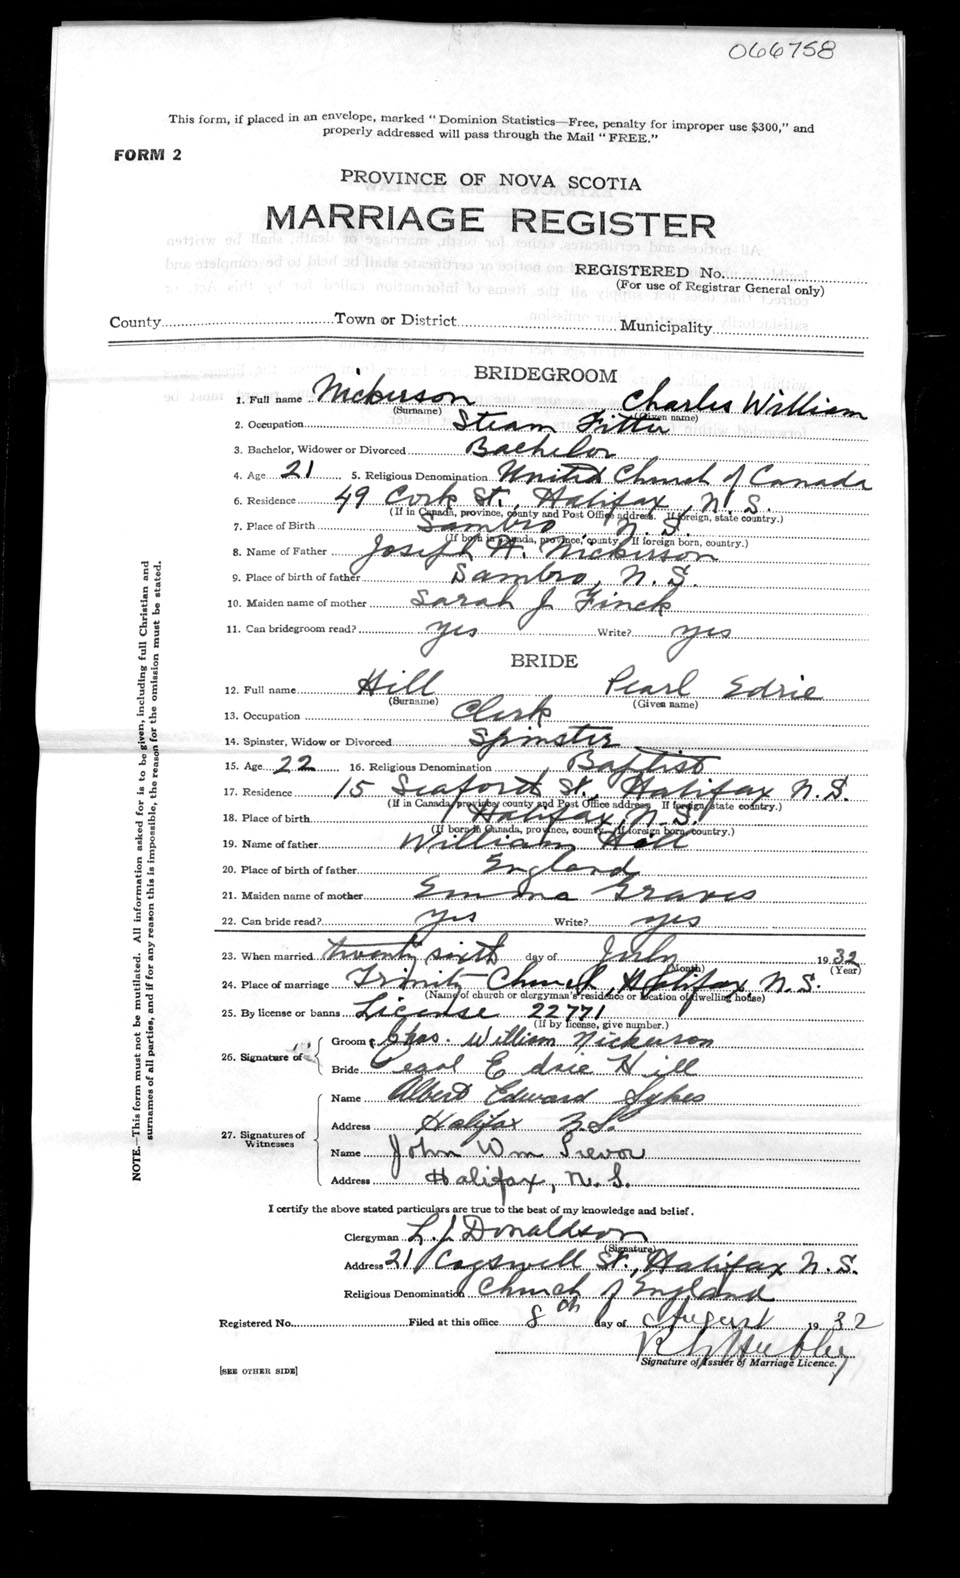 066758
This form, if placed in an envelope, marked "Dominion Statistics—Free, penalty for improper use $300," and
properly addressed will pass through the Mail "FREE."
FORM 2
PROVINCE OF NOVA SCOTIA
MARRIAGE REGISTER
REGISTERED No.
(For use of Registrar General only)
County Town or District Municipality
BRIDEGROOM
1. Full name Nickerson Charles William
(Surname) (Given name)
2. Occupation Steam Fitter
3. Bachelor, Widower or Divorced Bachelor
4. Age 21 5. Religious Denomination United Church of Canada
6. Residence 49 Cork St., Halifax, N.S.
(If in Canada, province, county and Post Office address. If foreign, state country.)
7. Place of Birth Sambro, N.S.
(If born in Canada, province, county. If foreign born, country.)
8. Name of Father Joseph A. Nickerson
9. Place of birth of father Sambro, N.S.
10. Maiden name of mother Sarah J. Finck
11. Can bridegroom read? yes Write? yes
BRIDE
12. Full name Hill Pearl Edrie
(Surname) (Given name)
13. Occupation Clerk
14. Spinster, Widow or Divorced Spinster
15. Age 22 16. Religious Denomination Baptist
17. Residence 15 Seaford St., Halifax N.S.
(If in Canada, province, county and Post Office address. If foreign, state country.)
18. Place of birth Halifax, N.S.
(If born in Canada, province, county. If foreign born, country.)
19. Name of father William Hill
20. Place of birth of father England
21. Maiden name of mother Emma Graves
22. Can bride read? yes Write? yes
23. When married twenty sixth day of July 19 32
(Month) (Year)
24. Place of marriage Trinity Church, Halifax, N.S.
(Name of church or clergyman's residence or location of dwelling house)
25. By license or banns License 22771
(If by license, give number.)
26. Signature of
Groom Chas. William Nickerson
Bride Pearl Edrie Hill
27. Signatures of Witnesses
Name Albert Edward Sykes
Address Halifax N.S.
Name John Wm Trevor
Address Halifax, N.S.
I certify the above stated particulars are true to the best of my knowledge and belief.
Clergyman L. J. Donaldson
(Signature)
Address 21 Cogswell St., Halifax N.S.
Religious Denomination Church of England
Registered No. Filed at this office 8th day of August 19 32
Hubley
Signature of Issuer of Marriage Licence.
[SEE OTHER SIDE]
NOTE.—This form must not be mutilated. All information asked for is to be given, including full Christian and
surnames of all parties, and if for any reason this is impossible, the reason for the omission must be stated.